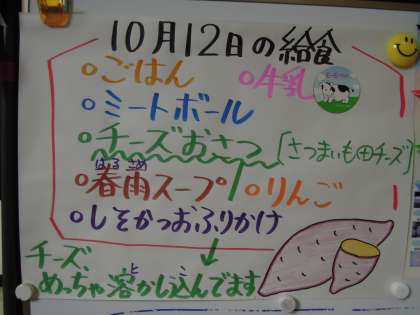 10月12日の給食
○ごはん ○牛乳
○ミートボール
○チーズおさつ [さつまいも田チーズ]
はる さめ
○春雨スープ ○りんご
○しそかつおふりかけ
チーズ、
と こ
めっちゃ溶かし込んでます